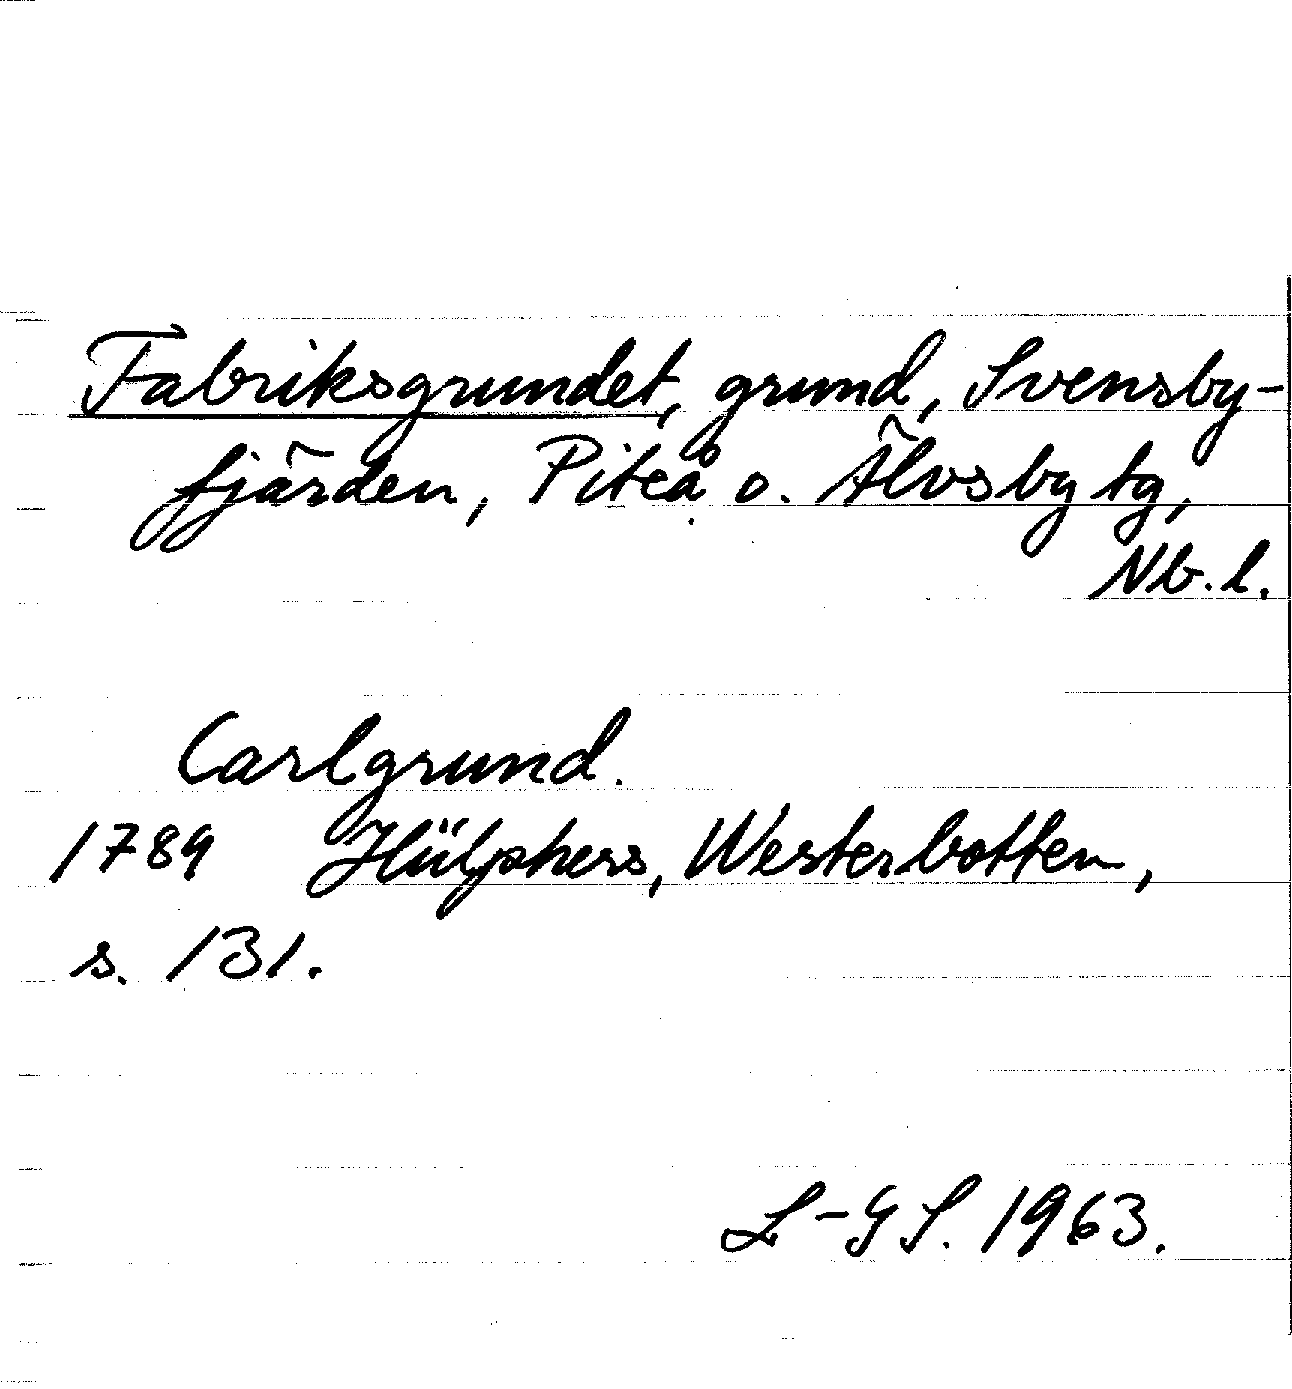 Fabriksgrundet, grund, Svensby-
fjärden, Piteå o. Älvsby tg,
Nb. l.
Carlgrund.
1789 Hülphers, Westerbotten,
s. 131.
L-GS. 1963.